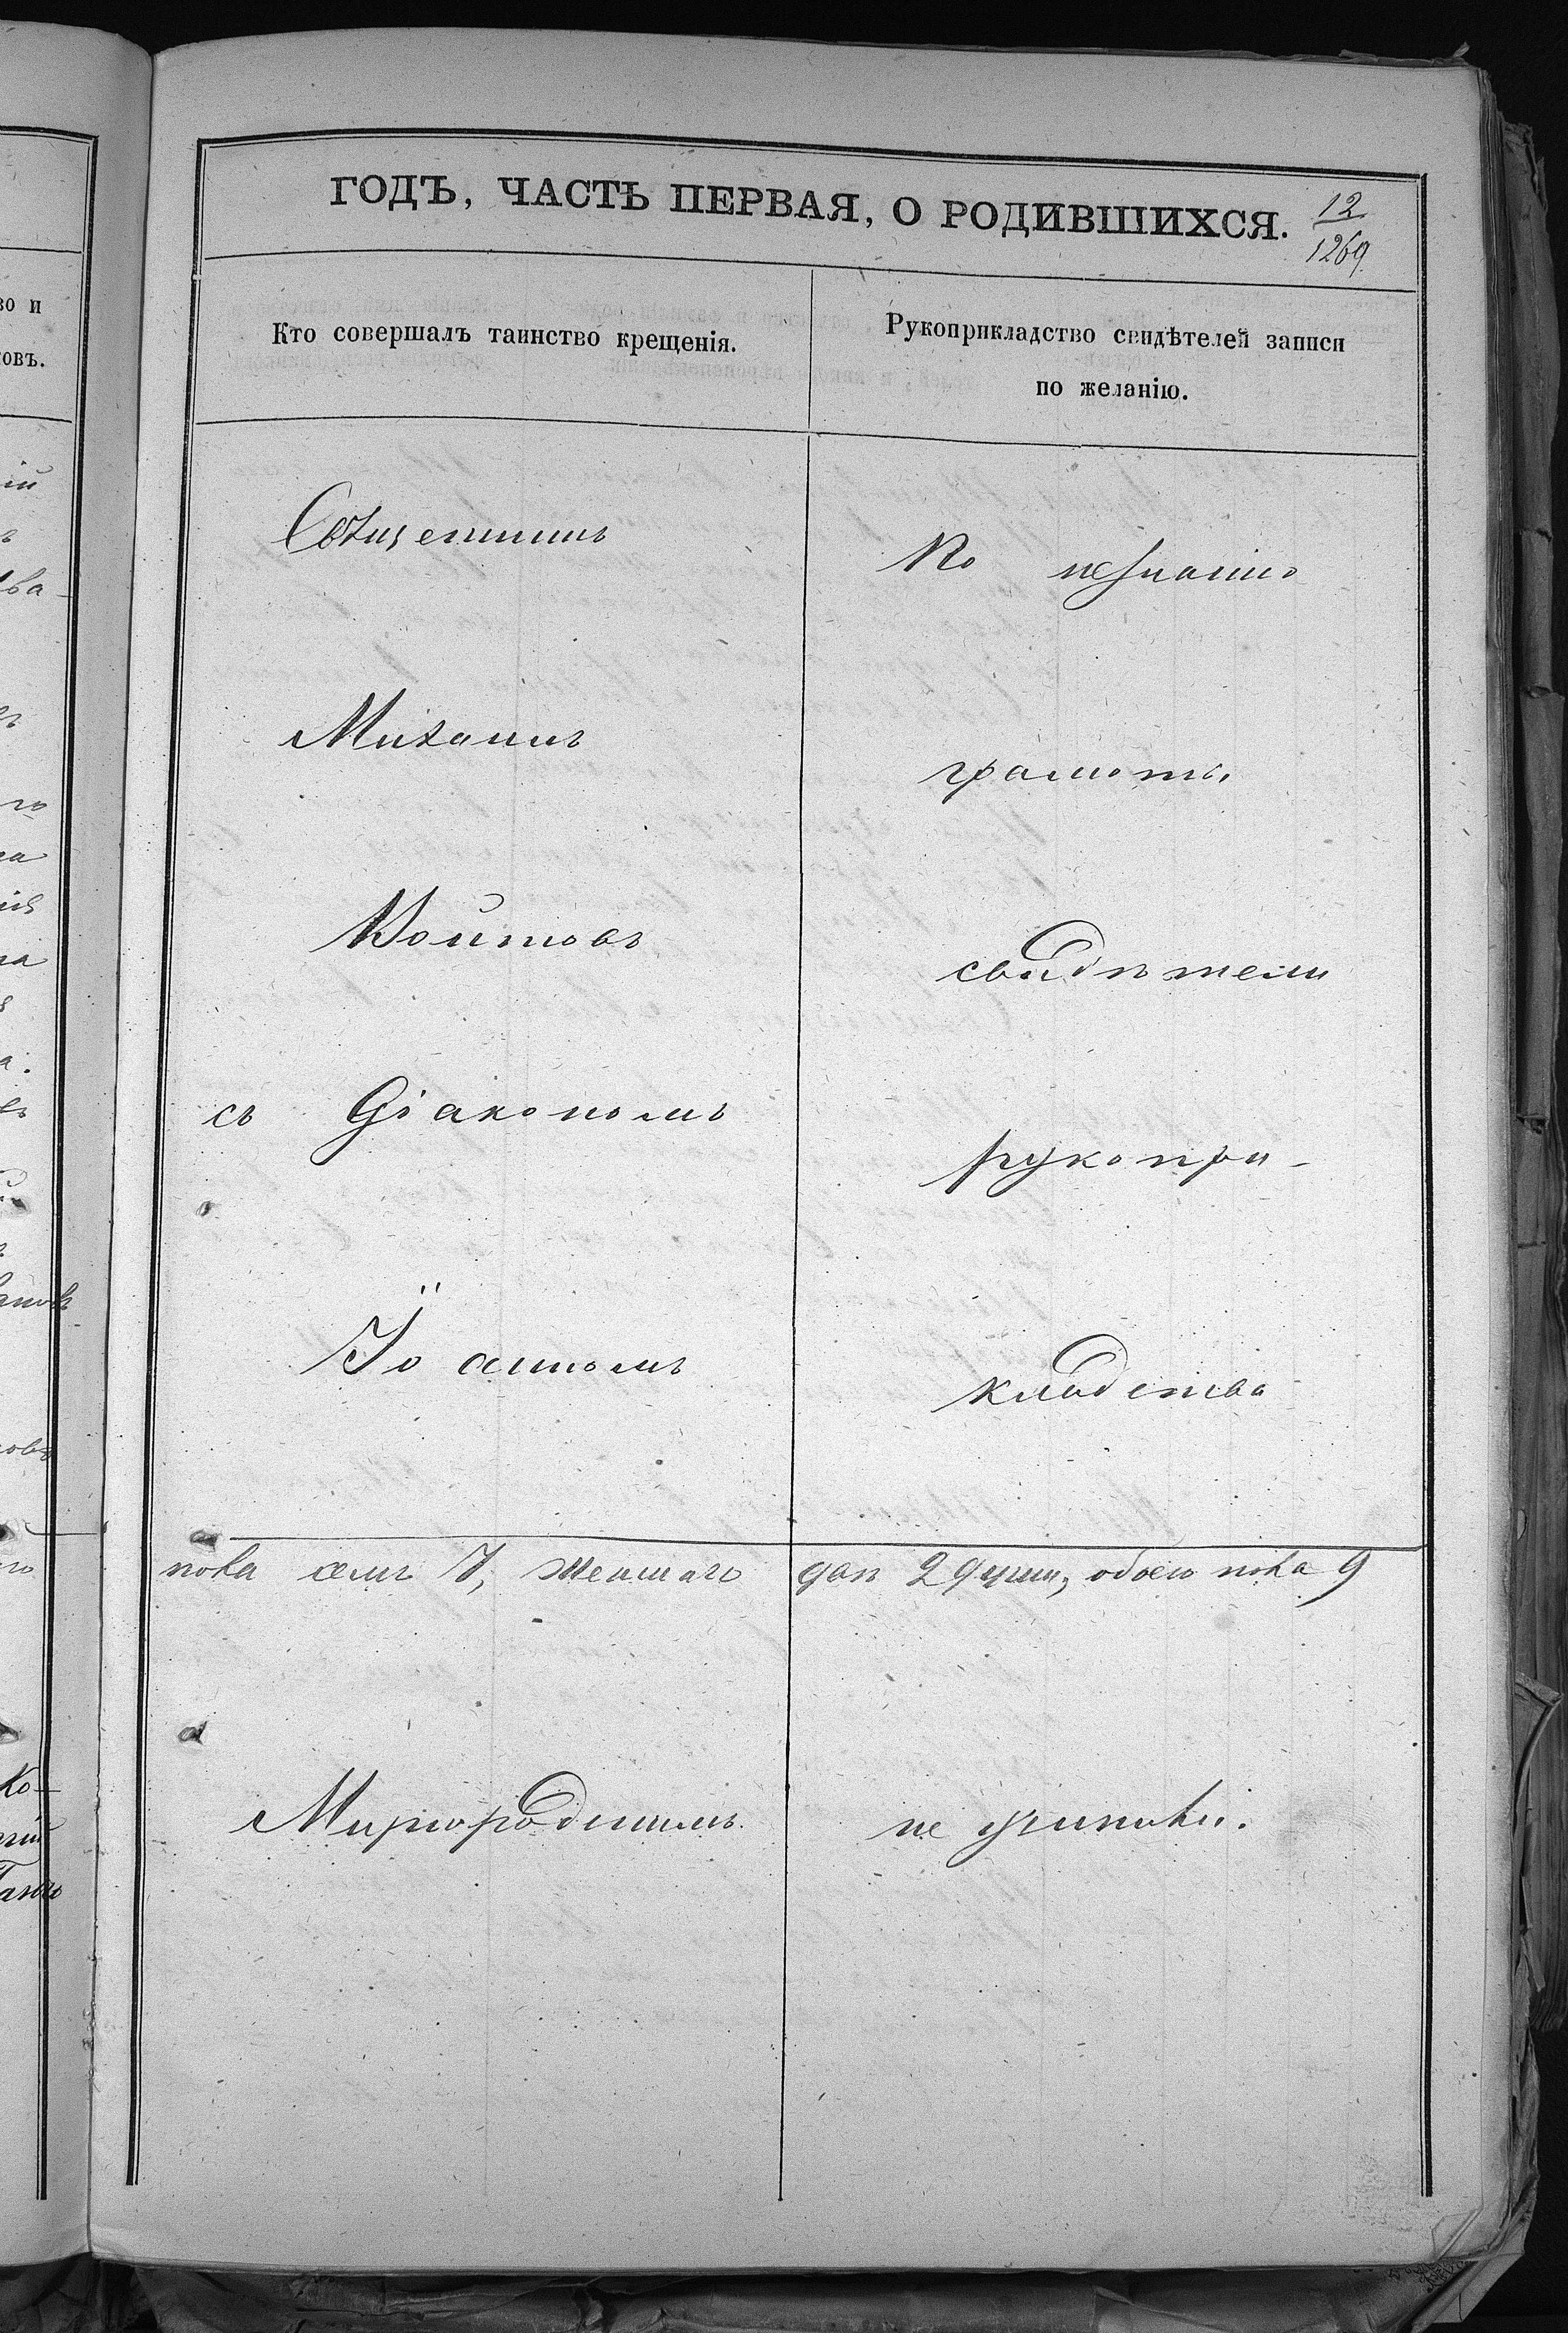 ГОДЪ, ЧАСТЬ ПЕРВАЯ, О РОДИВШИХСЯ.
12
1269
Кто совершалъ таинство крещенія.
Рукоприкладство свидѣтелей записи
по желанію.
Священникъ
Михаилъ
Войтовъ
съ Діакономъ
Іоанномъ
Миргородскимъ
По незнанію
грамоты
свидѣтели
рукопри-
кладства
не учинили.
пола семь 7, женшаго двѣ 2 души, обоего пола 9
во и
ковъ.